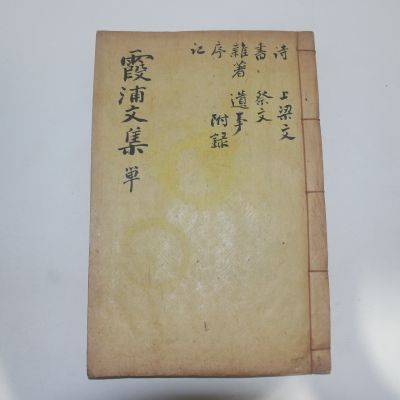 霞浦文集 単
詩 上梁文
書 祭文
雜著 遺事
序 附録
記